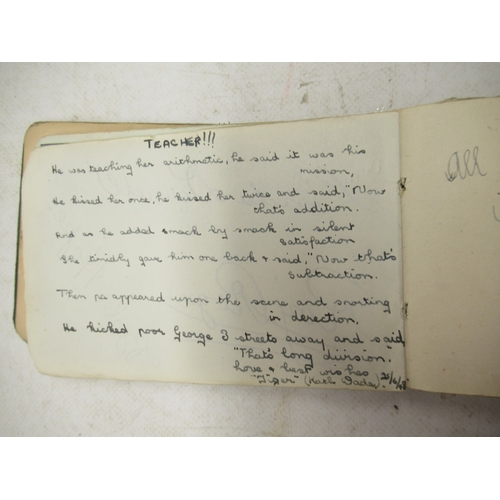 TEACHER!!!
He was teaching her arithmetic, he said it was his
mission,
He kissed her once, he kissed her twice and said, "Now
that's addition.
And as he added smack by smack in silent
satisfaction
She timidly gave him one back & said, "Now that's
subtraction.
Then pa appeared upon the scene and snorting
in derection,
He kicked poor George 3 streets away and said
"That's long division."
Love & best wishes
"Tiger" (Kath
all